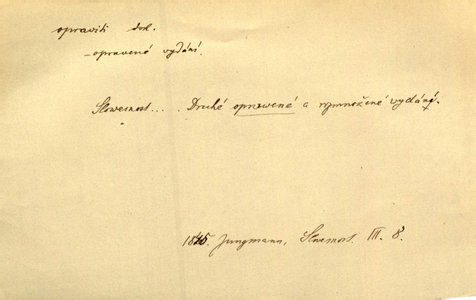 opraviti dok.
– opravené vydání.
Slowesnost... . Druhé oprawené a rozmnožené vydání.
1845 Jungmann, Slowesnost. III. 8.